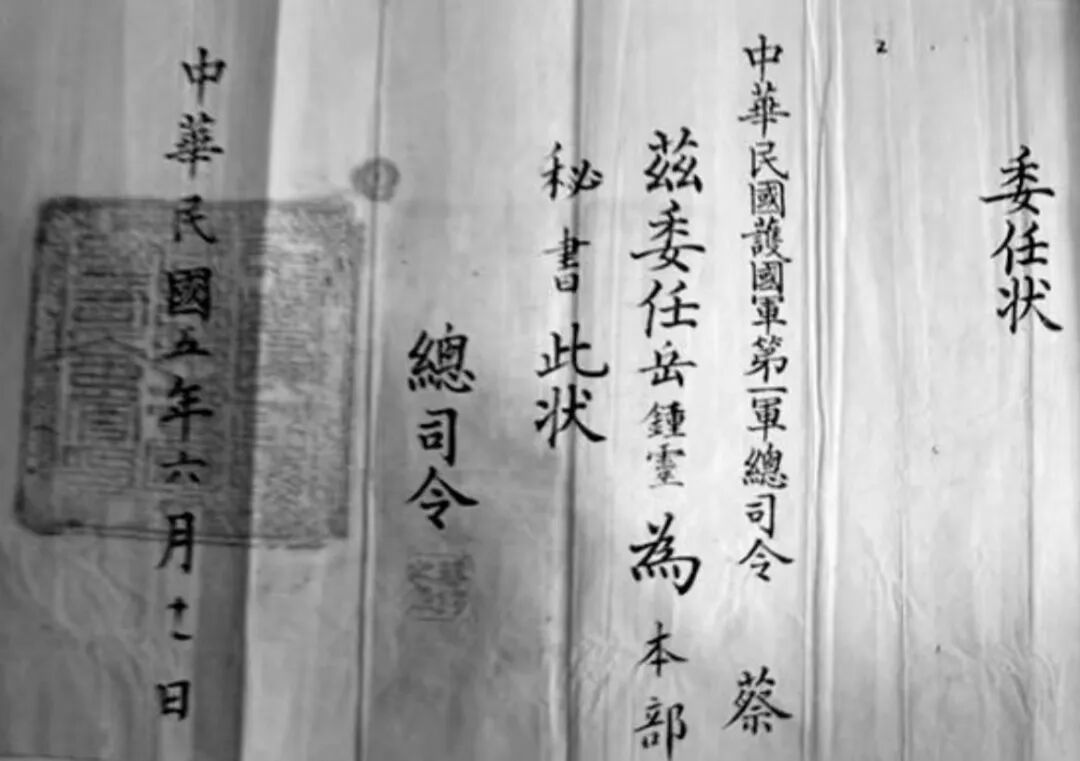 委任状
中華民國護國軍第一軍總司令 蔡
茲委任岳鍾霊為本部
秘書此状
總司令
中華民國五年六月十一日